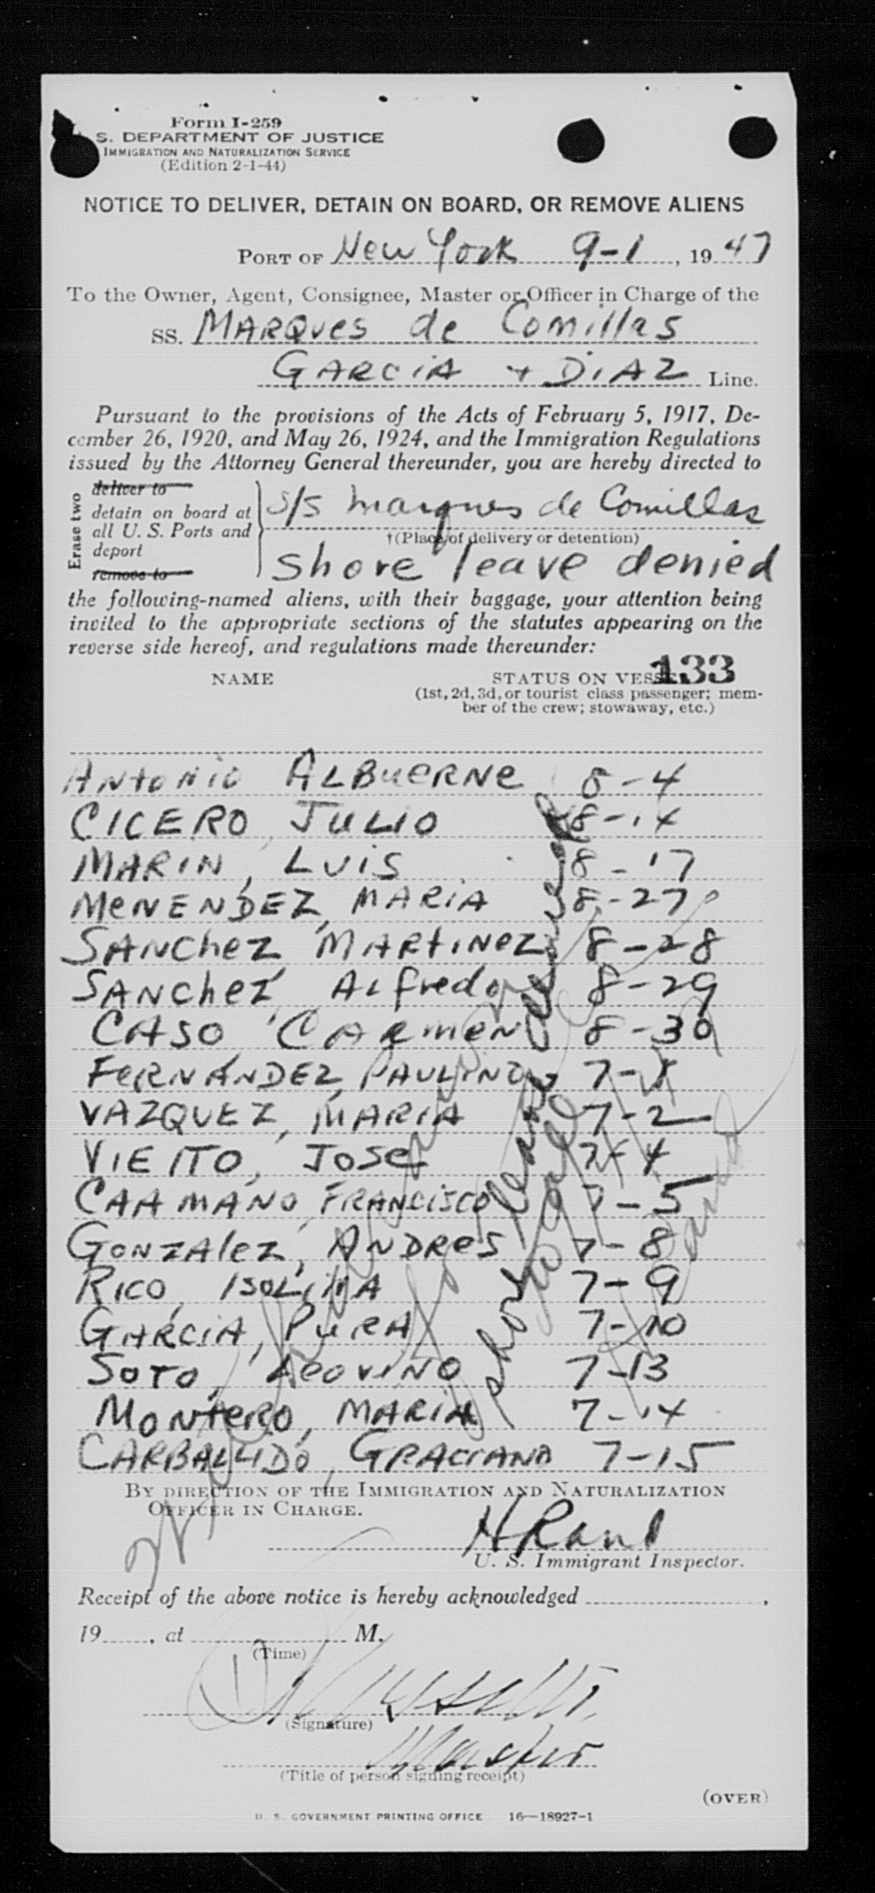 Form I-259
S. DEPARTMENT OF JUSTICE
IMMIGRATION AND NATURALIZATION SERVICE
(Edition 2-1-44)
NOTICE TO DELIVER, DETAIN ON BOARD, OR REMOVE ALIENS
PORT OF New York 9-1, 1947
To the Owner, Agent, Consignee, Master or Officer in Charge of the
SS. MARQues de Comillas
GARCIA + DIAZ Line.
Pursuant to the provisions of the Acts of February 5, 1917, De-
cember 26, 1920, and May 26, 1924, and the Immigration Regulations
issued by the Attorney General thereunder, you are hereby directed to
Erase two
deliver to
detain on board at
all U. S. Ports and
deport
remove to
S/S Marques de Comillas
†(Place of delivery or detention)
Shore leave denied
the following-named aliens, with their baggage, your attention being
invited to the appropriate sections of the statutes appearing on the
reverse side hereof, and regulations made thereunder:
133
NAME STATUS ON VESSEL
(1st, 2d, 3d, or tourist class passenger; mem-
ber of the crew; stowaway, etc.)
ANtoNio ALBueRNe 8-4
CICERO, JULIO 8-14
MARIN, LUIS 8-17
MeNENDEZ, MARIA 8-27
SANCheZ MARtiNeZ 8-28
SANCheZ Alfredo 8-29
CASO CARmeN 8-30
FeRNANDEZ, PAULINO 7-1
VAZQUEZ, MARIA 7-2
VIEITO, Jose 7-4
CAAMANO FRANCISCO 7-5
GONZAleZ, ANDRes 7-8
RICO, ISOLINA 7-9
GARCIA, PURA 7-10
SOTO, 7-13
MONteRO, MARIA 7-14
CARBALLIDO, GRACIANA 7-15
BY DIRECTION OF THE IMMIGRATION AND NATURALIZATION
OFFICER IN CHARGE.
H Rand
U. S. Immigrant Inspector.
Receipt of the above notice is hereby acknowledged ,
19 , at M.
(Time)
(Signature)
Master
(Title of person signing receipt)
(OVER)
U. S. GOVERNMENT PRINTING OFFICE 16—18927-1